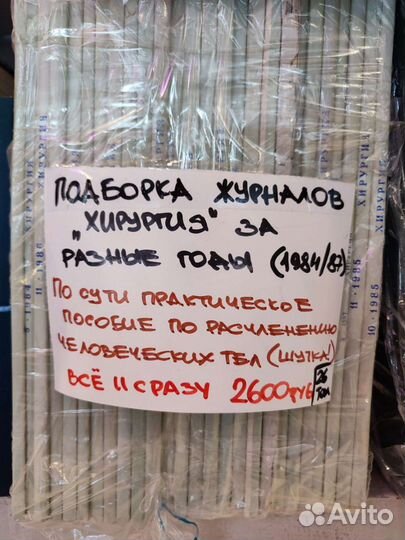 ПОДБОРКА ЖУРНАЛОВ
„ХИРУРГИЯ" ЗА
РАЗНЫЕ ГОДЫ (1984/87)
ПО СУТИ ПРАКТИЧЕСКОЕ
ПОСОБИЕ ПО РАСЧЛЕНЕНИЮ
ЧЕЛОВЕЧЕСКИХ ТЕЛ (ШУТКА)
ВСЁ II СРАЗУ 2600 РУБ
26
ТОМ
ХИРУРГИЯ
11 · 1985
ХИРУРГИЯ
ХИРУРГИЯ
10 · 1985
Avito